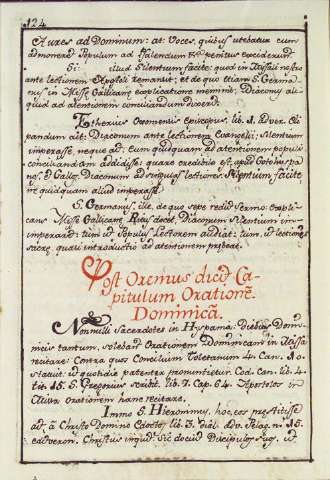 124
Aures ad Dominum: at: Voces, quibus utebatur cum
admoneret Populum ad Psalendum Rōpentius exciderunt.
Si: illud Silentium facite: quod in Missali nostro
ante lectionem Apostoli remansit; et de quo etiam S. Germa-
nus in Missæ Gallicanæ explicatione meminit; Diaconus ali-
quid ad attentionem conciliandum dicendi.
Etherius Oxomensis Episcopus, lib. 1. adver. Eli-
pandum ait: Diaconum ante lectionem Evangelii, silentium
imperasse, neque ad: Eum quidquam ad attentionem populi
conciliandam addidisse: quare credibile est, apud Gothohispa-
nos, et Gallos, Diaconum ad singulas lectiones Silentium facite
ne quidquam aliud imperasse.
S. Germanus, ille, de quo sepe redit sermo: Explic-
ans Missæ Gallicanæ Ritus docet, Diaconum Silentium im-
imperare: tum ut Populus Lectorem audiat: tum, ut lectiones
sacræ, quasi introductio ad attentionem præbeat.
Post Oremus dicit Ca-
pitulum, Orationē
Dominicā.
Nonnulli Sacerdotes in Hyspania: Diebus Domi-
nicis tantum, solebant Orationem Dominicam in Missa
recitare: Contra quos Concilium Toletanum 4. Can. 10.
statuit: ut quotidie patenter pronuntietur. Cod. can. lib. 4.
tit. 15. S. Gregorius scribit lib. 7. Cap. 64. Apostolos in
Missa orationem hanc recitare.
Immo S. Hieronymus, hoc, eos præstitisse
ait, à Christo Domino edoctos, lib. 3. dial. adv. Pelag. n. 15.
ead veron. Christus inquit Sic docuit Discipulos suos, ut